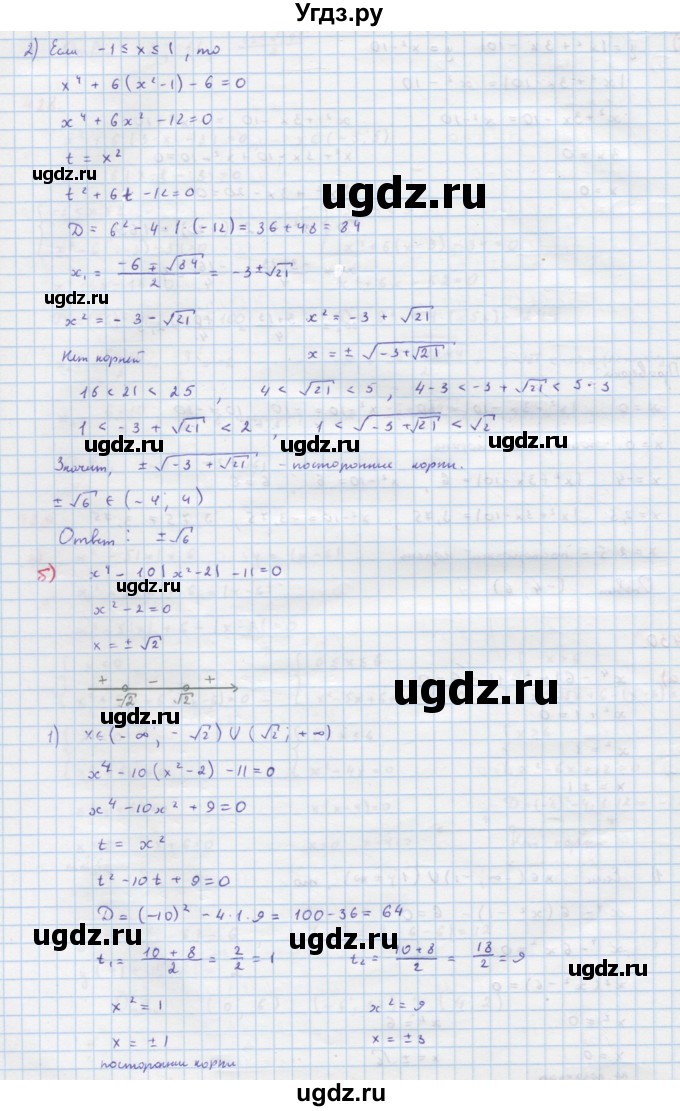 Угдз.ру
2) Если -1 ≤ x ≤ 1, то
x⁴ + 6(x² - 1) - 6 = 0
x⁴ + 6x² - 12 = 0
t = x²
ugdz.ru
ugdz.ru
t² + 6t - 12 = 0
D = 6² - 4 · 1 · (-12) = 36 + 48 = 84
x₁ = (-6 ∓ √84)/2 = -3 ± √21
ugdz.ru
x² = -3 - √21 x² = -3 + √21
Нет корней x = ± √(-3 + √21)
16 < 21 < 25, 4 < √21 < 5; 4-3 < -3 + √21 < 5-3
1 < -3 + √21 < 2, 1 < √(-3 + √21) < √2
ugdz.ru ugdz.ru
Значит, ± √(-3 + √21) - посторонние корни.
± √6 ∈ (-4; 4)
ugdz.ru
Ответ: ± √6
б) x⁴ - 10|x² - 2| - 11 = 0
ugdz.ru
x² - 2 = 0
x = ± √2
+ - +
-√2 √2
ugdz.ru
1) x ∈ (-∞; -√2) ∪ (√2; +∞)
ugdz.ru
x⁴ - 10(x² - 2) - 11 = 0
x⁴ - 10x² + 9 = 0
t = x²
t² - 10t + 9 = 0
D = (-10)² - 4 · 1 · 9 = 100 - 36 = 64
ugdz.ru ugdz.ru
t₁ = (10 + 8)/2 = 2/2 = 1 t₂ = (10 + 8)/2 = 18/2 = 9
ugdz.ru
x² = 1 x² = 9
x = ± 1 x = ± 3
посторонние корни
ugdz.ru